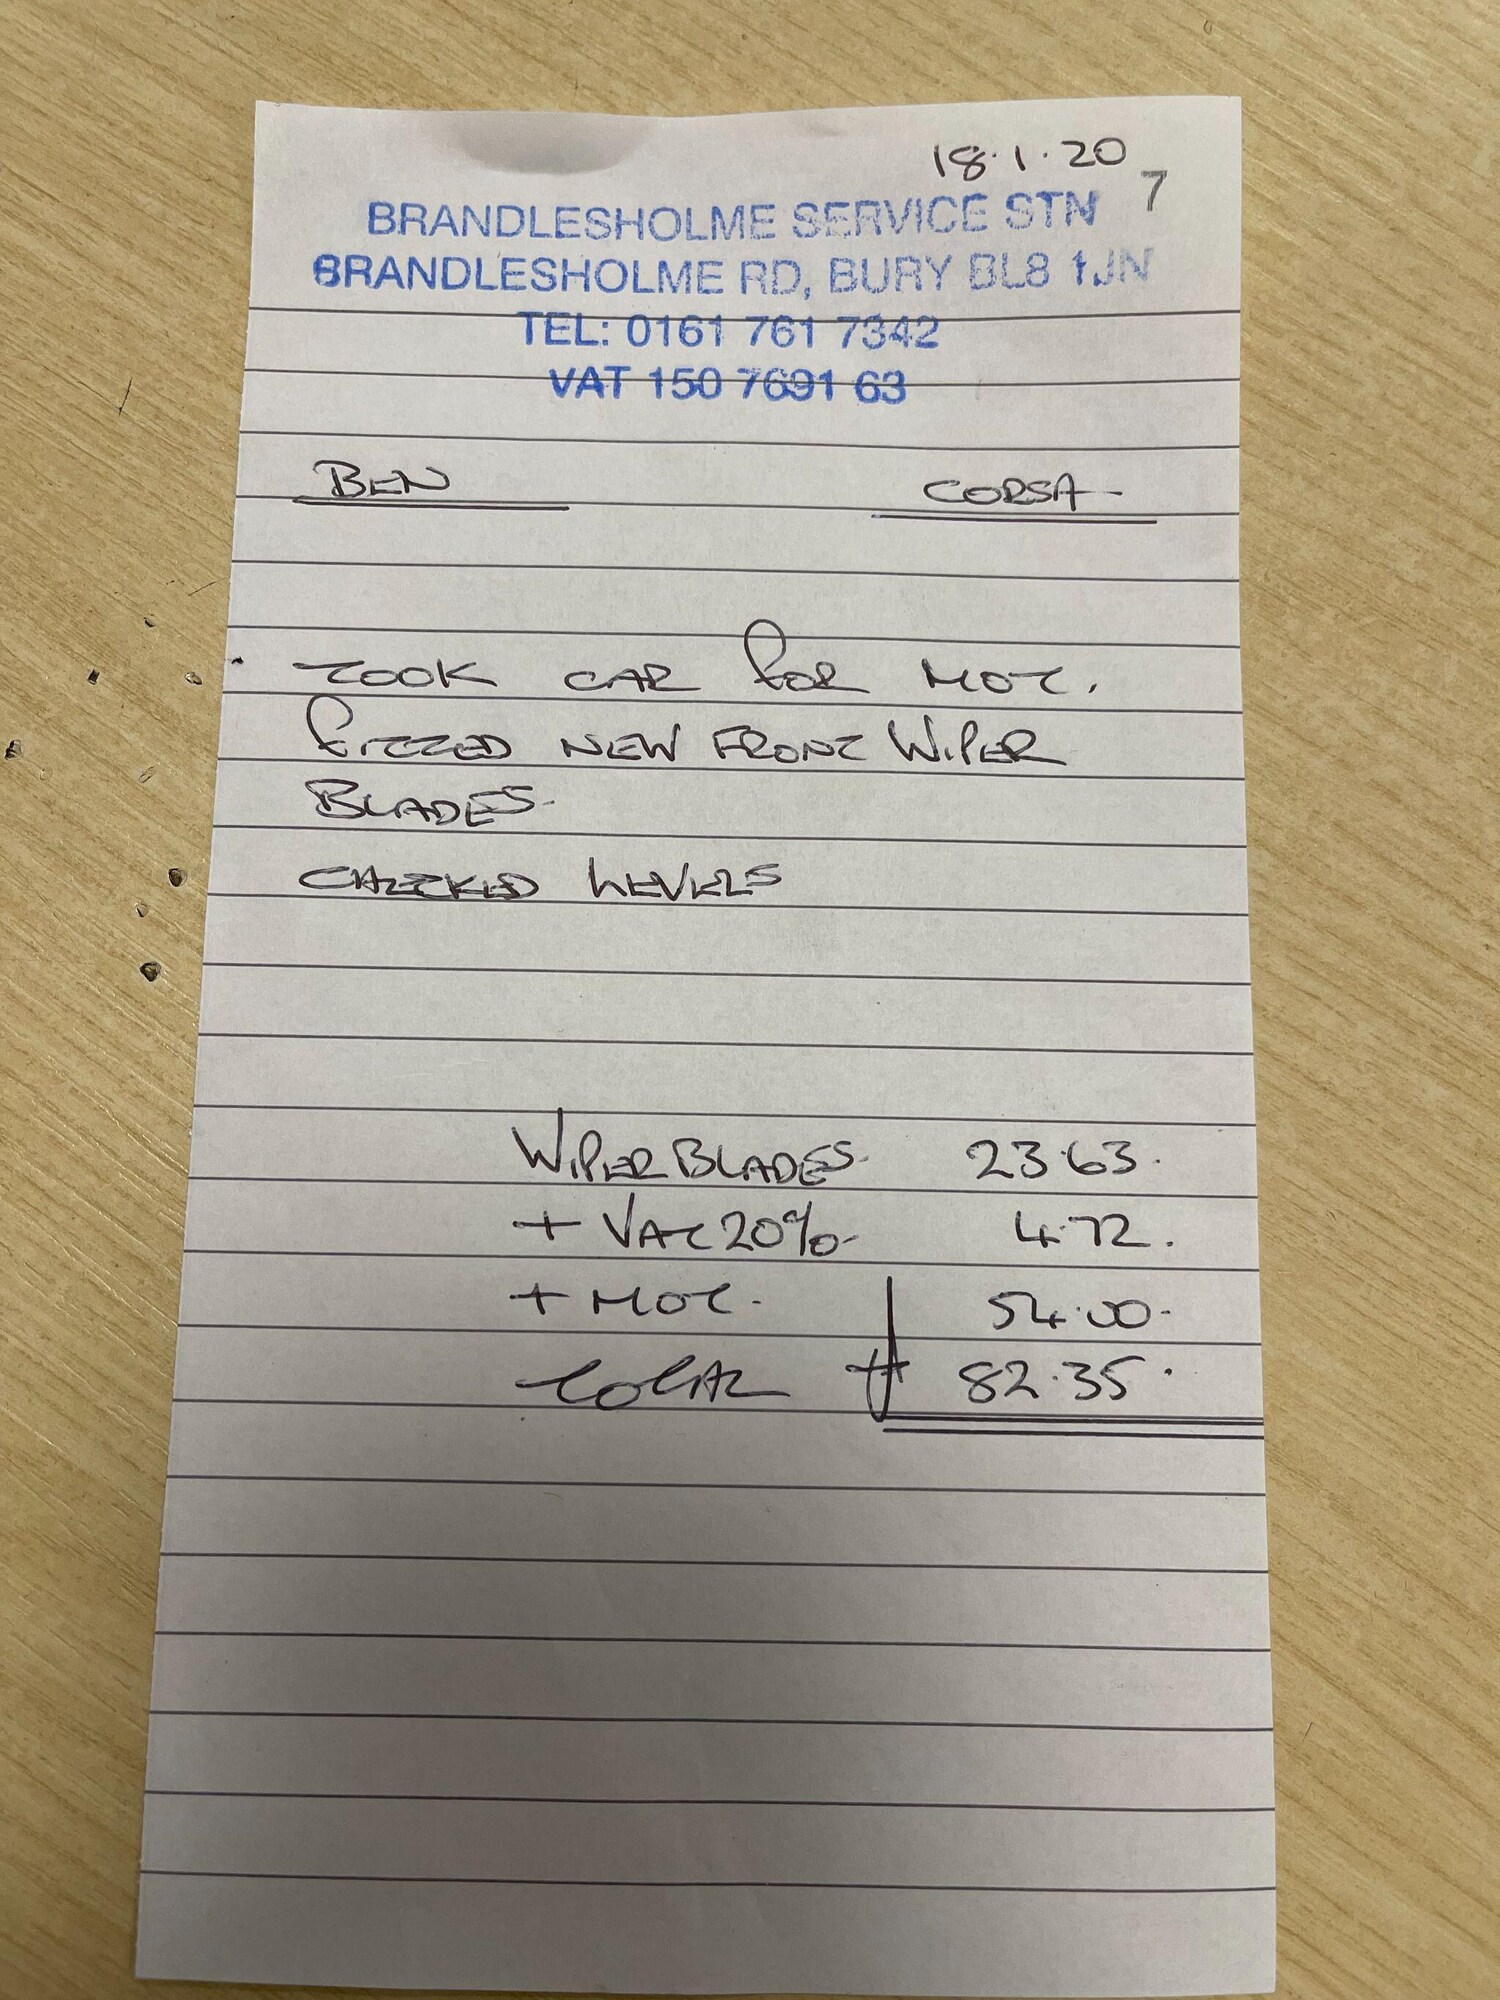 18.1.20
7
BRANDLESHOLME SERVICE STN
BRANDLESHOLME RD, BURY BL8 1JN
TEL: 0161 761 7342
VAT 150 7691 63
BEN CORSA
TOOK CAR FOR MOT.
FITTED NEW FRONT WIPER
BLADES.
CHECKED LEVELS
WIPER BLADES 23.63.
+ VAT 20% 4.72.
+ MOT. 54.00.
TOTAL £ 82.35.